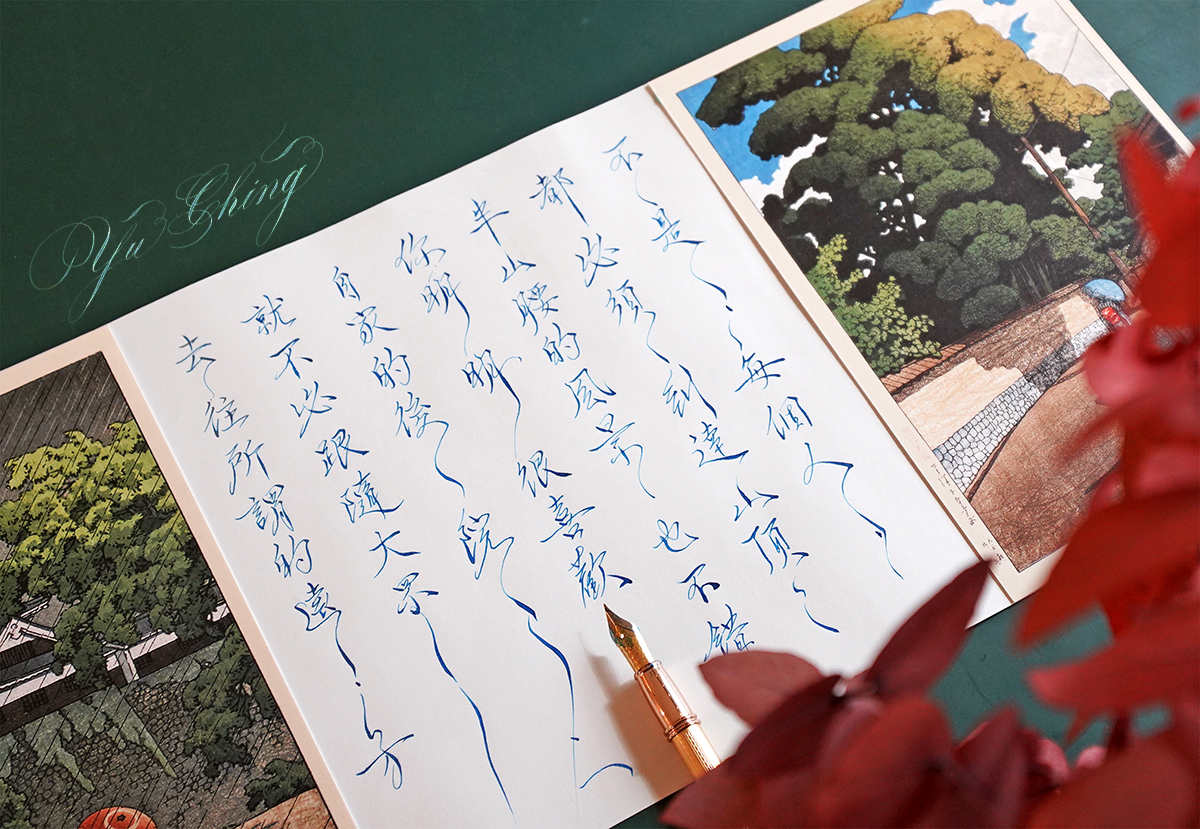 不是每個人
都必須到達山頂
半山腰的風景 也不錯
你明明很喜歡
自家的後院
就不必跟隨大眾
去往所謂的遠方
Yu Ching